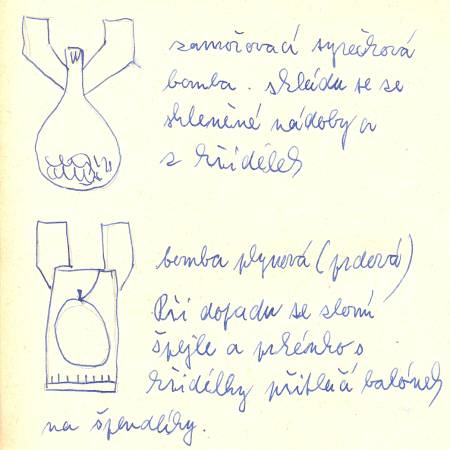 zamořovací syrečková
bomba. skládá se ze
skleněné nádoby a
z křidélek
bomba plynová (prdová)
Při dopadu se zlomí
špejle a prkénko s
křidélky přitlačí balónek
na špendlíky.